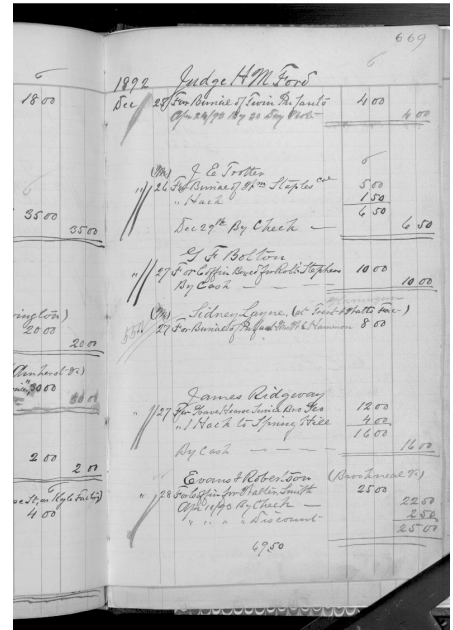 669
6
1892 Judge H M Ford
Dec 28 For Burial of Twin Infants 4 00
Apr 24/93 By 20 Day Note 4 00
6
(Mrs) J E Trotter
" 26 For Burial of Wm Staples Col 5 00
" Hack 1 50
6 50
Dec 29th By Check — 6 50
G F Bolton
" 27 For Coffin Box for Robt Stephens 10 00
By Cash — — — 10 00
(Mrs) Sidney Layne (at
27 For Burial of 8 00
James Ridgway
" 27 For
" 1 Hack to Spring Hill 4 00
12 00
16 00
By Cash — — — 16 00
Evans & Robertson (Brookneal Va)
" 28 For Coffin for Walter Smith 25 00
Apr 10/93 By Check — 22 50
" " " " Discount 2 50
25 00
6950
6
18 00
35 00
35 00
20 00
20 00
(Amherst Va)
30 00
30 00
2 00
2 00
4 00